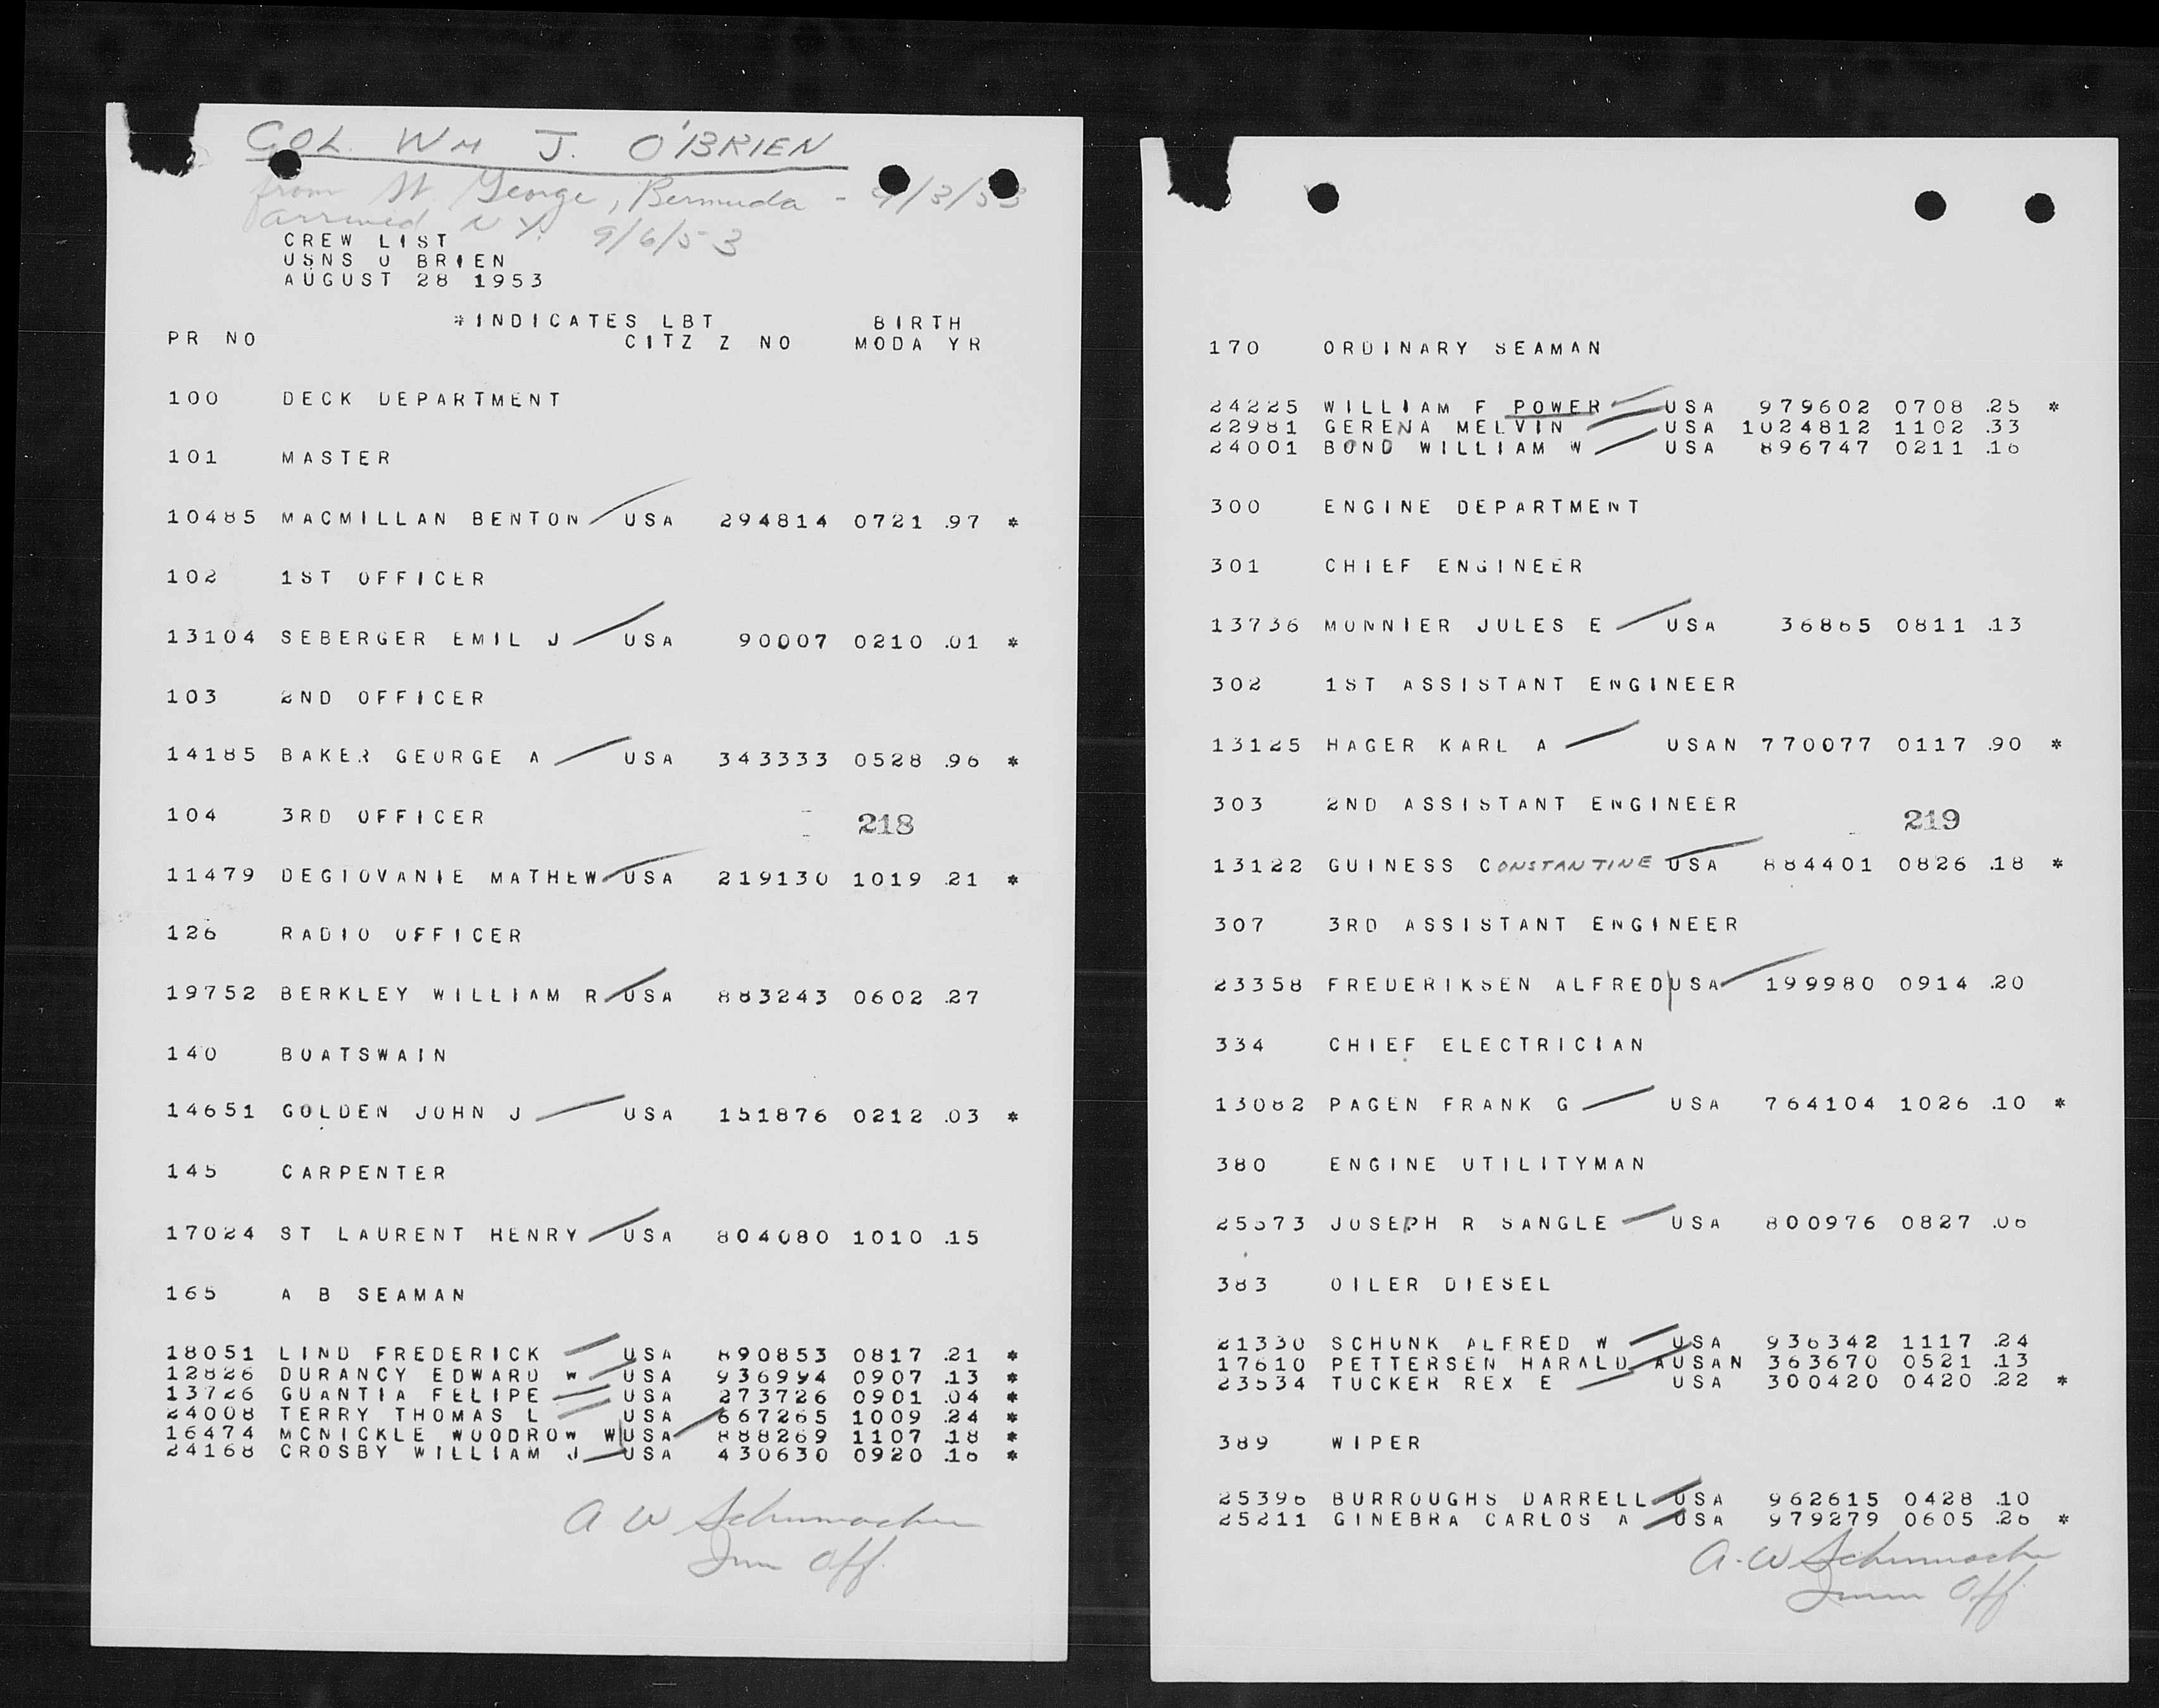 COL. WM J. O'BRIEN
from St. George, Bermuda - 9/3/53
arrived N.Y. 9/6/53
CREW LIST
USNS O BRIEN
AUGUST 28 1953
*INDICATES LBT BIRTH
PR NO CITZ Z NO MODA YR
100 DECK DEPARTMENT
101 MASTER
10485 MACMILLAN BENTON USA 294814 0721 .97 *
102 1ST OFFICER
13104 SEBERGER EMIL J USA 90007 0210 .01 *
103 2ND OFFICER
14185 BAKER GEORGE A USA 343333 0528 .96 *
104 3RD OFFICER
218
11479 DEGIOVANIE MATHEW USA 219130 1019 .21 *
126 RADIO OFFICER
19752 BERKLEY WILLIAM R USA 883243 0602 .27
140 BOATSWAIN
14651 GOLDEN JOHN J USA 151876 0212 .03 *
145 CARPENTER
17024 ST LAURENT HENRY USA 804080 1010 .15
165 A B SEAMAN
18051 LIND FREDERICK USA 890853 0817 .21 *
12826 DURANCY EDWARD W USA 936994 0907 .13 *
13726 GUANTIA FELIPE USA 273726 0901 .04 *
24008 TERRY THOMAS L USA 667265 1009 .24 *
16474 MCNICKLE WOODROW W USA 888269 1107 .18 *
24168 CROSBY WILLIAM J USA 430630 0920 .16 *
A W Schumacher
Imm Off.
170 ORDINARY SEAMAN
24225 WILLIAM F POWER USA 979602 0708 .25 *
22981 GERENA MELVIN USA 1024812 1102 .33
24001 BOND WILLIAM W USA 896747 0211 .16
300 ENGINE DEPARTMENT
301 CHIEF ENGINEER
13736 MONNIER JULES E USA 36865 0811 .13
302 1ST ASSISTANT ENGINEER
13125 HAGER KARL A USAN 770077 0117 .90 *
303 2ND ASSISTANT ENGINEER
219
13122 GUINESS CONSTANTINE USA 884401 0826 .18 *
307 3RD ASSISTANT ENGINEER
23358 FREDERIKSEN ALFRED USA 199980 0914 .20
334 CHIEF ELECTRICIAN
13082 PAGEN FRANK G USA 764104 1026 .10 *
380 ENGINE UTILITYMAN
25573 JOSEPH R SANGLE USA 800976 0827 .06
383 OILER DIESEL
21330 SCHUNK ALFRED W USA 936342 1117 .24
17610 PETTERSEN HARALD A USAN 363670 0521 .13
23534 TUCKER REX E USA 300420 0420 .22 *
389 WIPER
25396 BURROUGHS DARRELL USA 962615 0428 .10
25211 GINEBRA CARLOS A USA 979279 0605 .26 *
A. W Schumacher
Imm Off